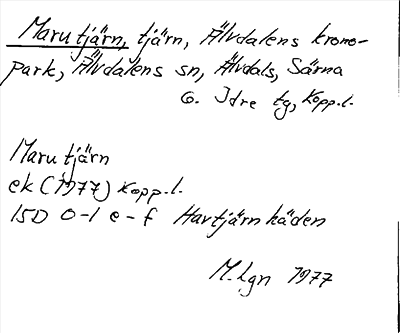 Marutjärn, tjärn, Älvdalens krono-
park, Älvdalens sn, Älvdals, Särna
o. Idre tg, Kopp.l.
Marutjärn
ek (1977) Kopp.l.
15D 0-1 e-f Havtjärnhäden
M.Lgn 1977